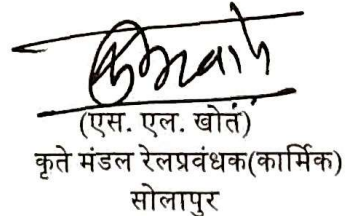 (एस. एल. खोत)
कृते मंडल रेलप्रवंधक(कार्मिक)
सोलापुर